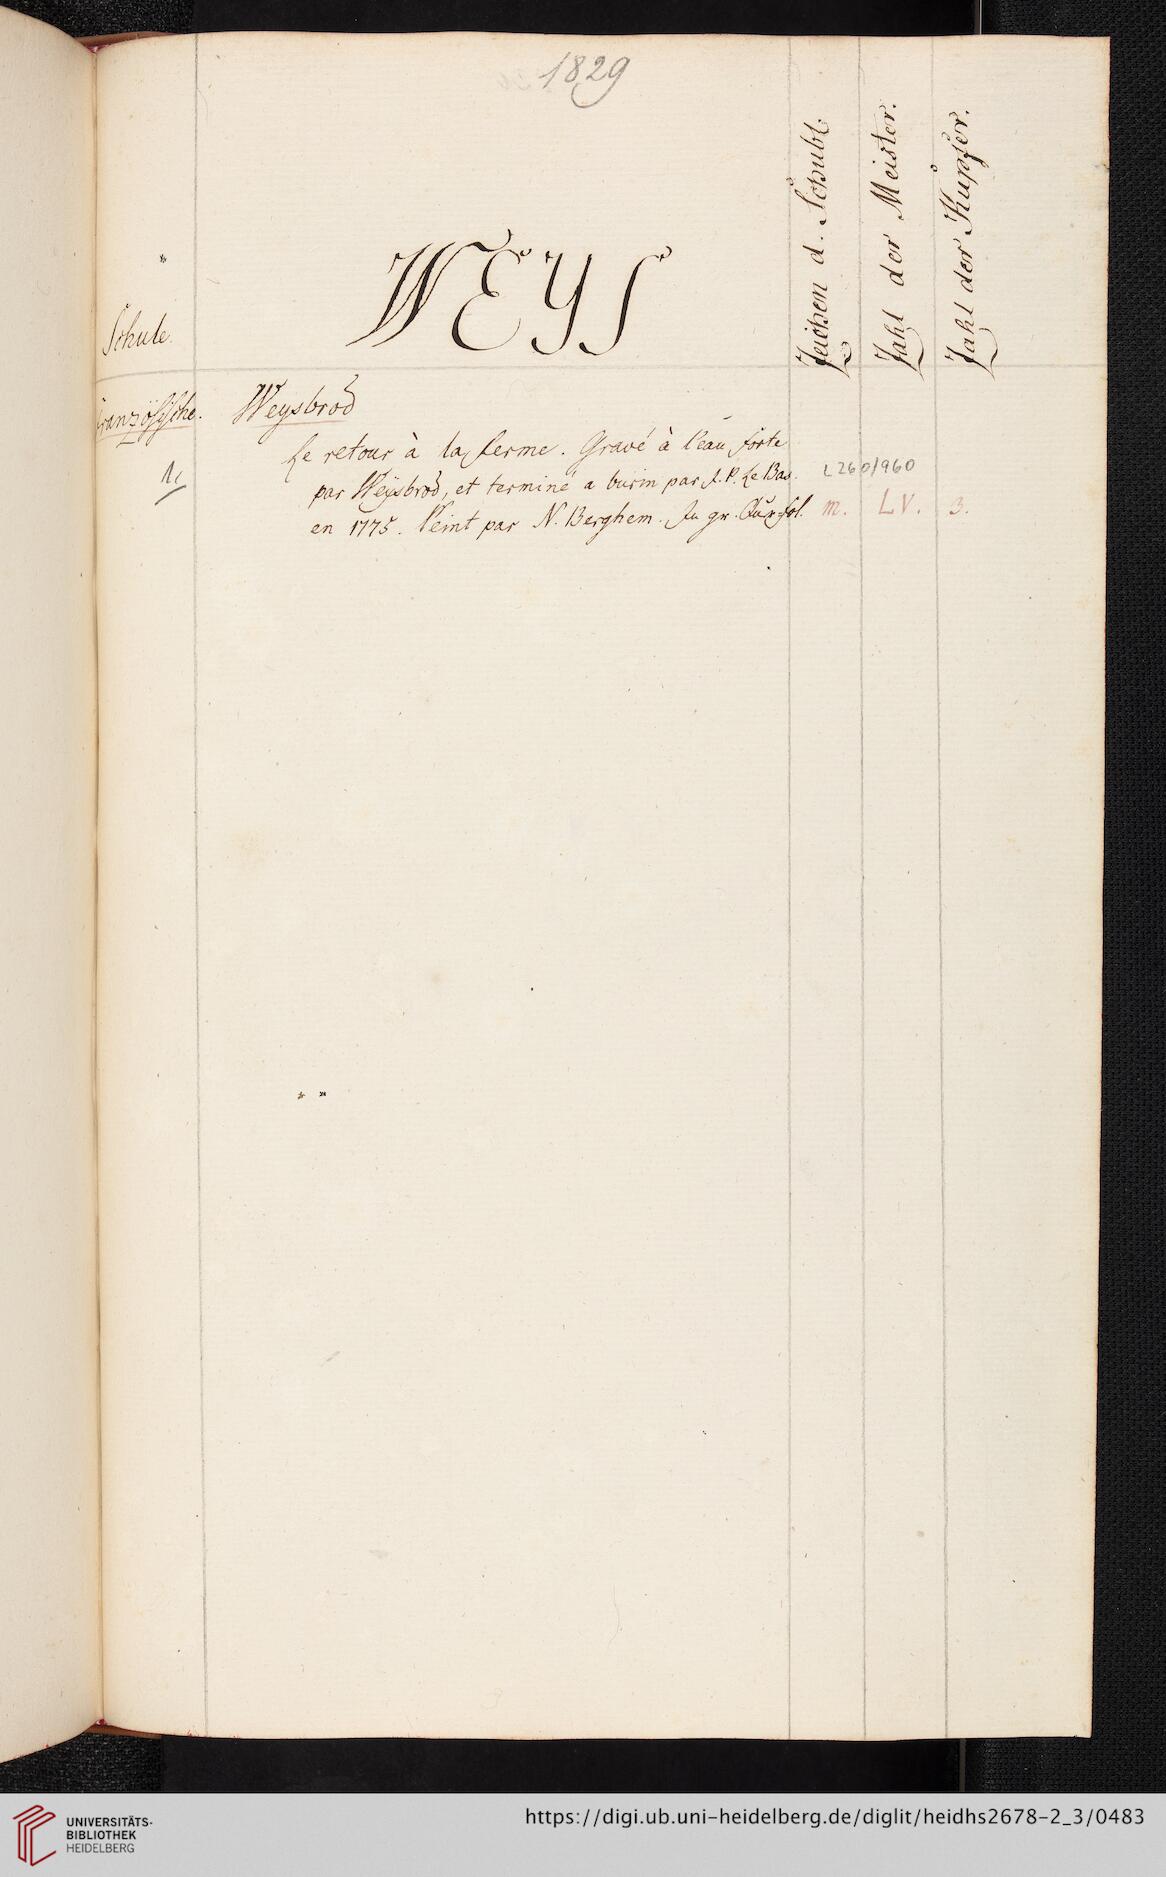 1829
Zeichen d. Schubl.
Zahl der Meister.
Zahl der Kupfer.
WEYS
Schule.
Französische. Weysbrod
Le retour à la ferme. Gravé à l'eau forte
1, par Weysbrod, et terminé a burin par J. P. Le Bas. L 260/960
en 1775. Peint par N. Berghem. In gr. Qu. fol. m. LV. 3.
UNIVERSITÄTS-
BIBLIOTHEK
HEIDELBERG
https://digi.ub.uni-heidelberg.de/diglit/heidhs2678-2_3/0483